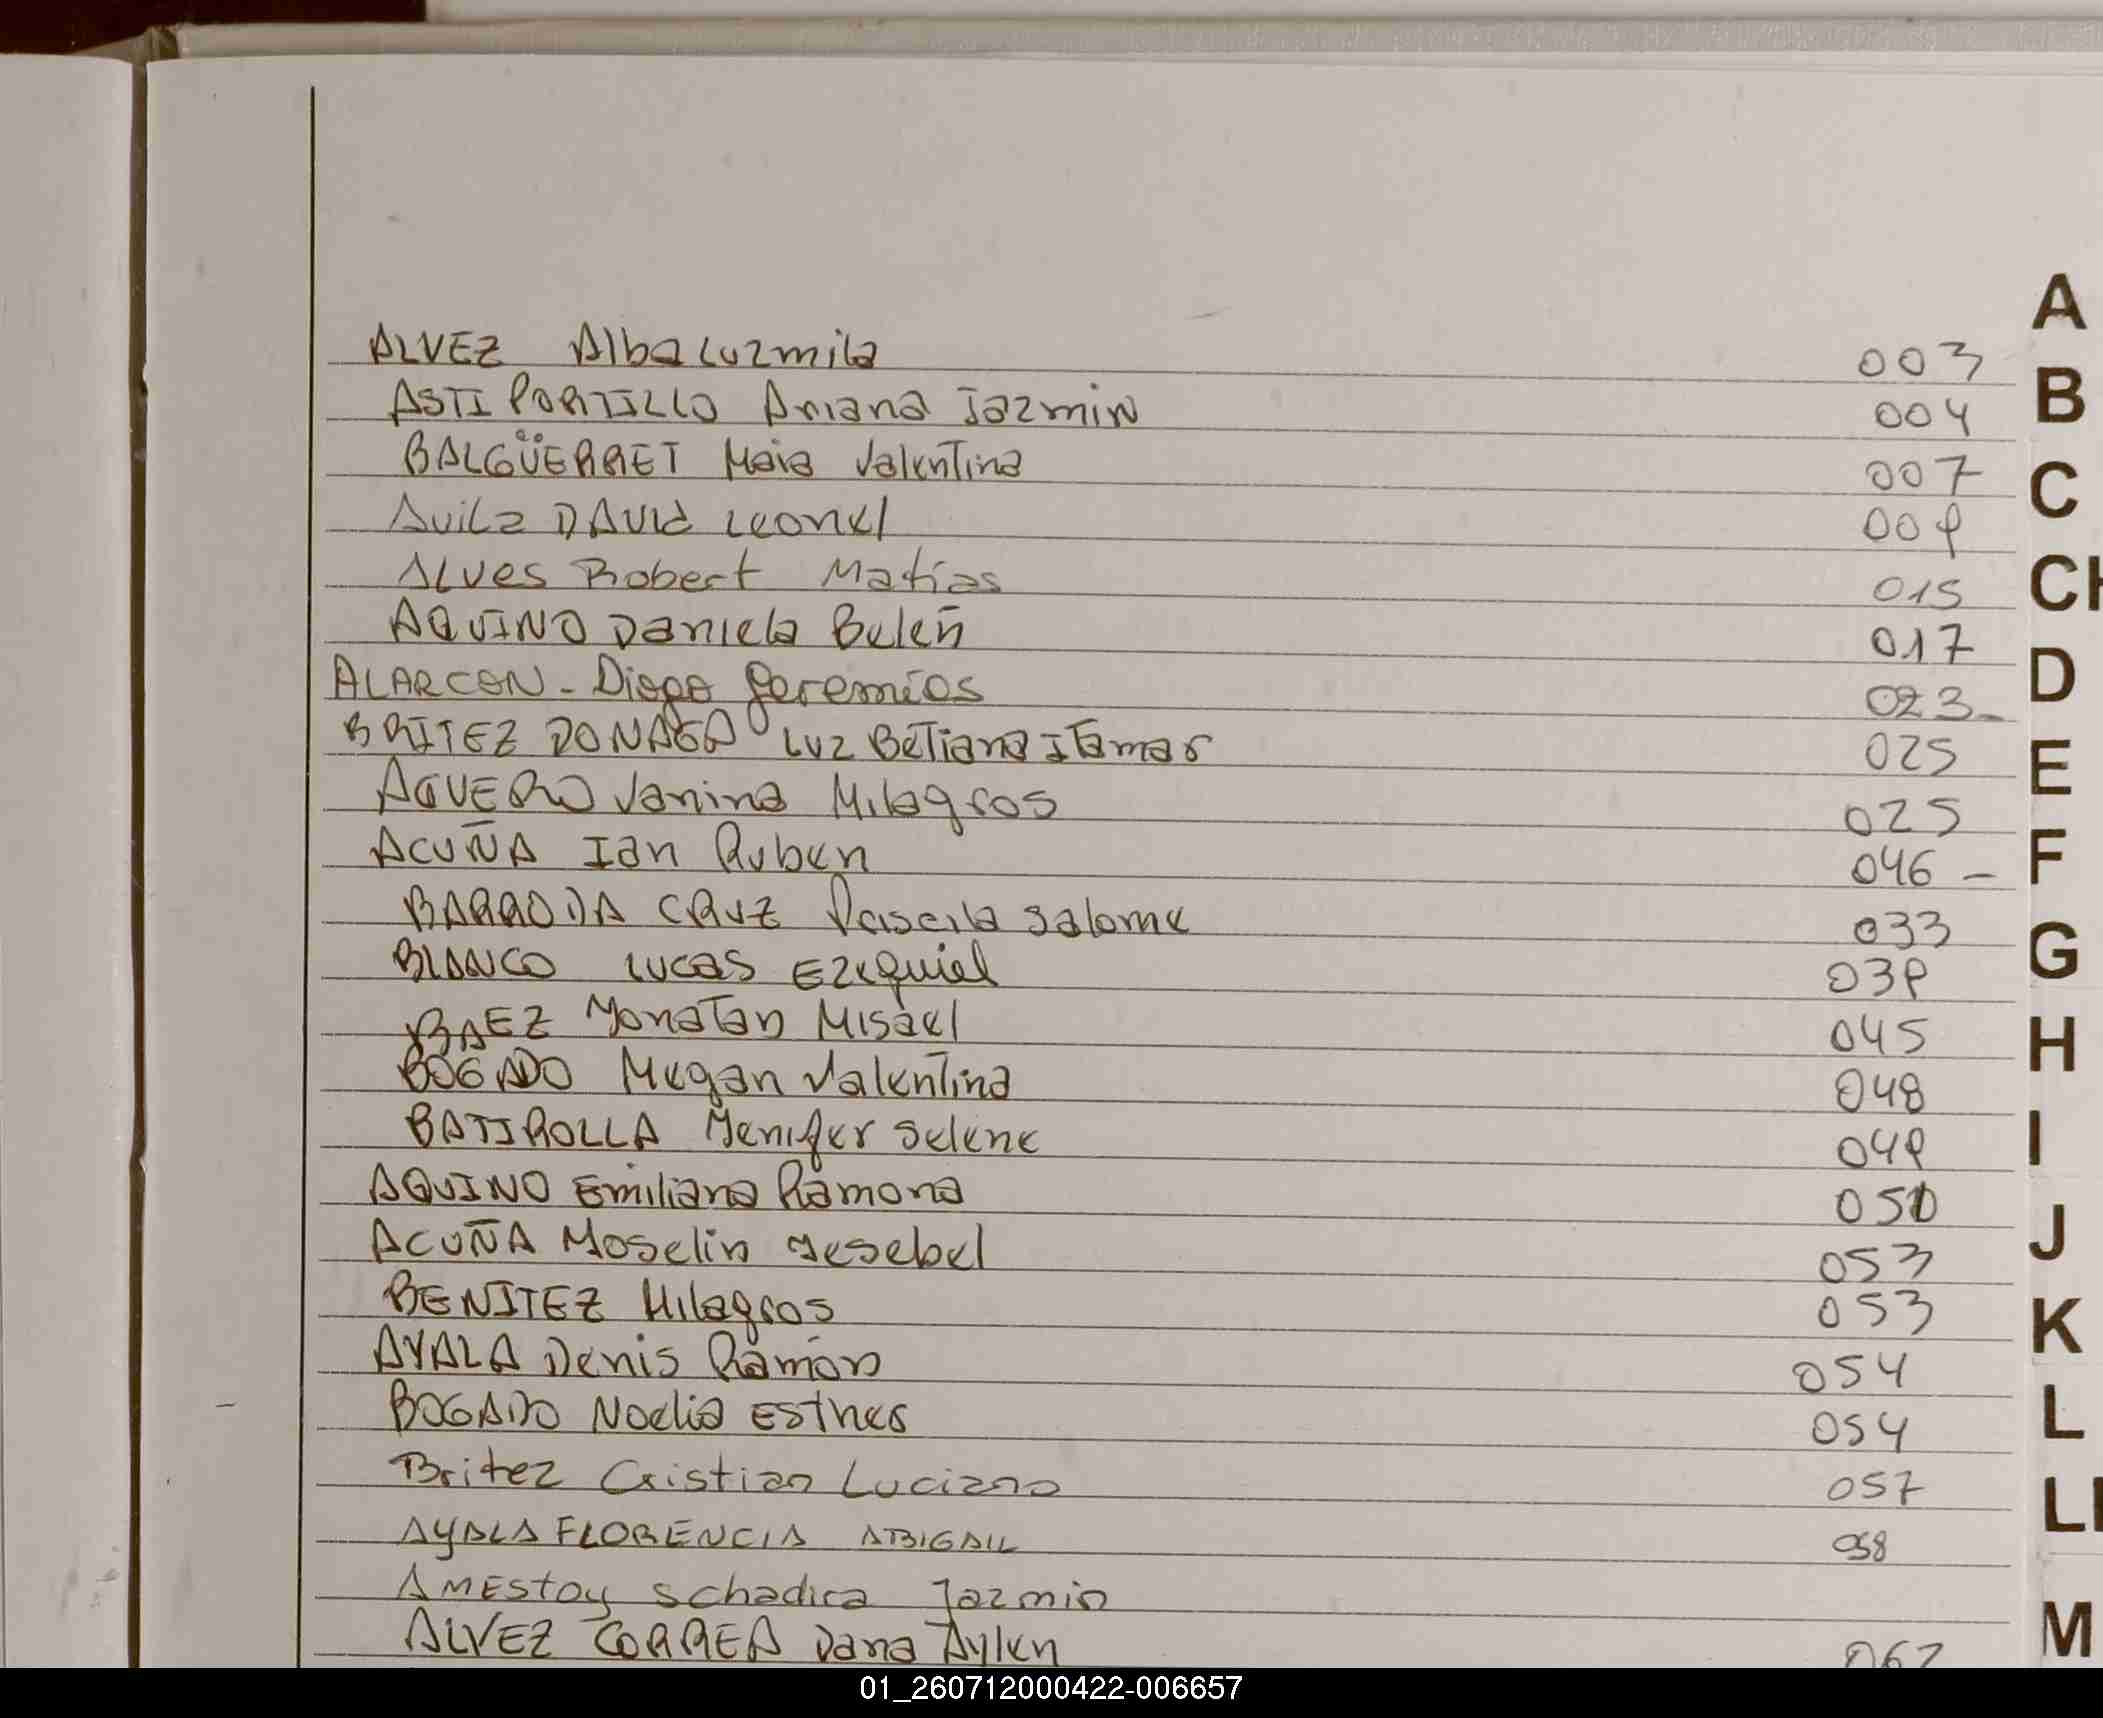 A
ALVEZ Alba Luzmila 003
B
ASTI PORTILLO Ariana Jazmin 004
BALGÜERRET Maia Valentina 007
C
Avila DAVId Leonel 009
CH
ALves Robert Matías 015
AQUINO Daniela Belén 017
D
ALARCON - Diego Geremías 023-
BRITEZ DONAGA Luz Betiana Itamar 025
E
AGUERO Janina Milagros 025
F
ACUÑA Ian Ruben 046 -
BARRODA CRUZ Salome 033
G
BLANCO LUCAS Ezequiel 039
H
BAEZ Yonatan Misael 045
BOGADO Megan Valentina 048
I
BATIROLLA Yenifer Selene 049
AQUINO Emiliana Ramona 050
J
ACUÑA Yoselin Jesebel 053
BENITEZ Milagros 053
K
AYALA Denis Ramón 054
L
BOGADO Noelia Esther 054
Britez Cristian Luciano 057
LL
AYALA FLORENCIA ABIGAIL 058
AMEStoy Schadira Jazmin
M
ALVEZ CORREA Dana Aylen 062
01_260712000422-006657